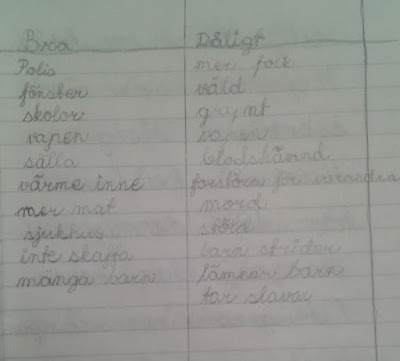 Bra Dåligt
Polis mer folk
fönster våld
skolor grymt
vapen vapen
sälla blodshämnd
värme inne förstöra för varandra
mer mat mord
sjukhus stöld
inte skaffa barn strider
många barn lämnar barn
tar slavar